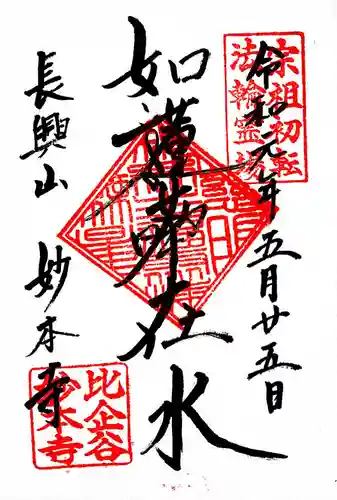 宗祖初転
法輪霊場
令和元年五月廿五日
如蓮華在水
長興山 妙本寺
比企谷
妙本寺